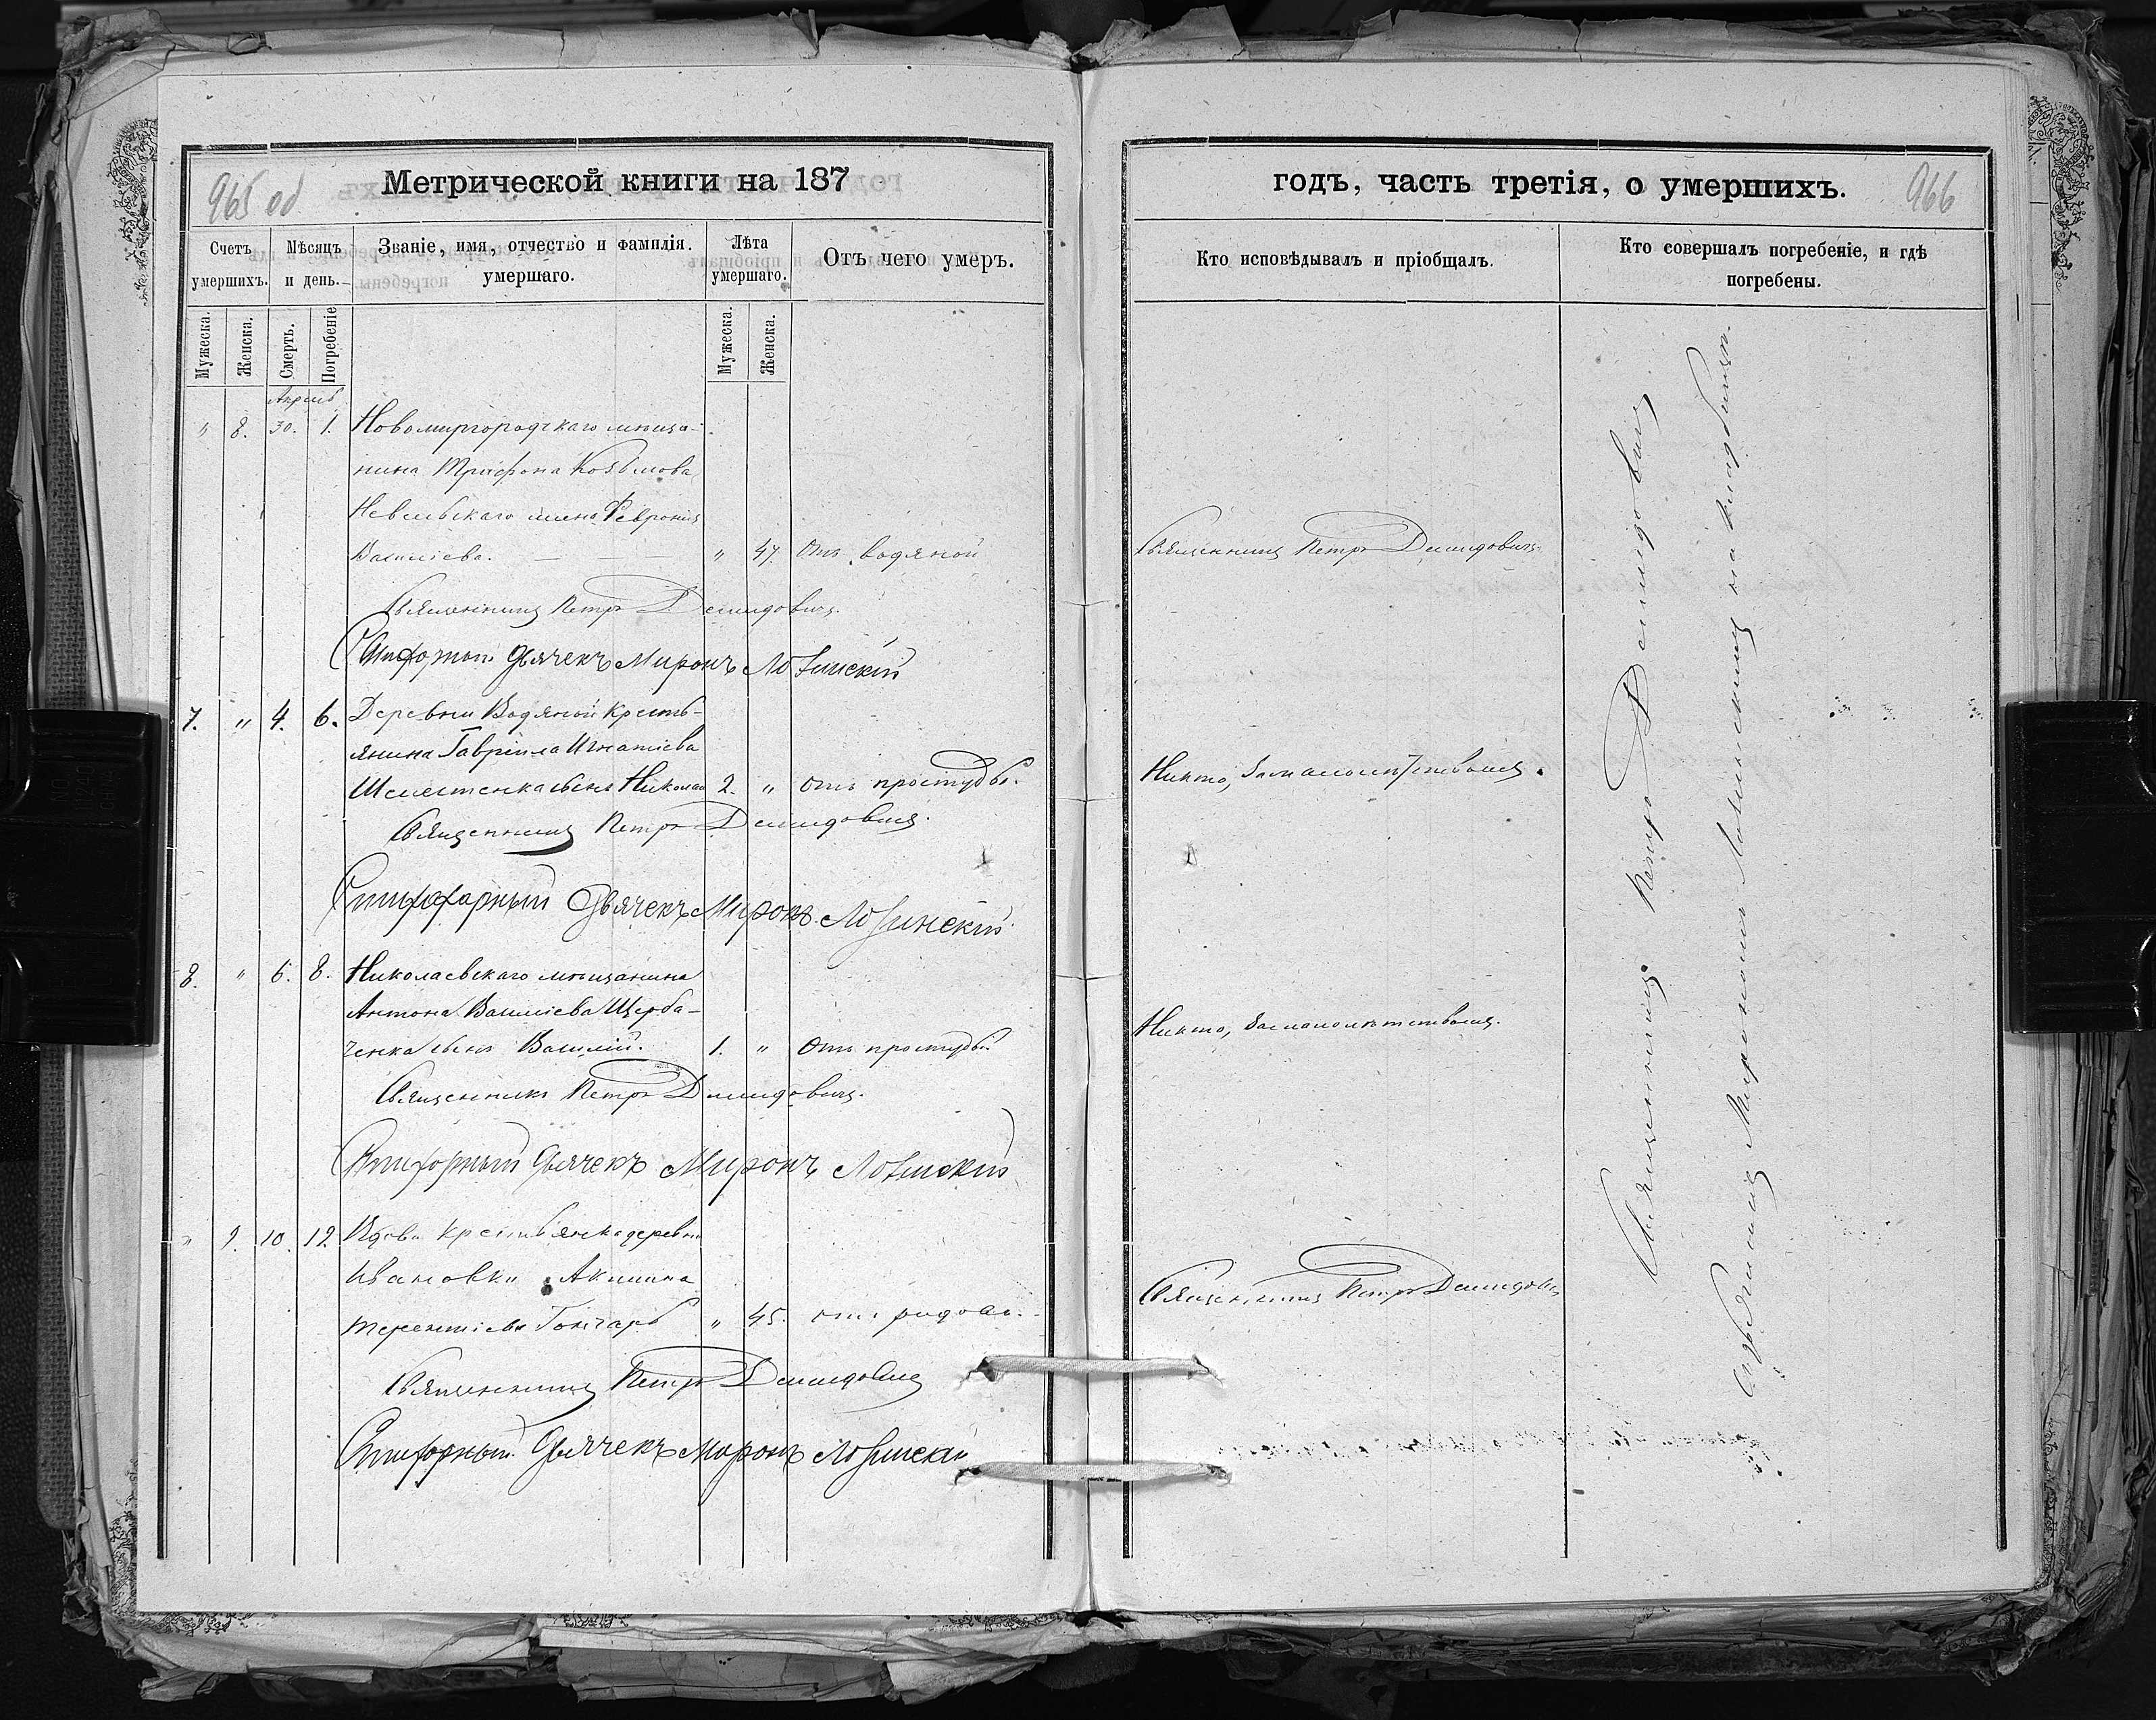 965 об
Метрической книги на 187
Счетъ умершихъ.
Мѣсяцъ и день.
Званіе, имя, отчество и фамилія. умершаго.
Лѣта умершаго.
Отъ чего умеръ.
Мужеска.
Женска.
Смерть.
Погребеніе
Мужеска.
Женска.
Апрель
" 8. 30. 1. Новомиргородскаго мѣща-
нина Трифона Козьмова
Невельскаго жена Феврония
Василіева. — — " 47. Отъ водяной
Священникъ Петръ Демидовичъ.
Стихарный Дьячекъ Миронъ Лозинскій
7. " 4. 6. Деревни Водяной кресть-
янина Гавріила Игнатіева
Шелестенка сынъ Николай 2. " отъ простуды.
Священникъ Петръ Демидовичъ.
Стихарный Дьячекъ Миронъ Лозинскій
8. " 6. 8. Николаевскаго мѣщанина
Антона Василіева Щерба-
ченка сынъ Василій. 1. " Отъ простуды
Священникъ Петръ Демидовичъ.
Стихарный Дьячекъ Миронъ Лозинскій
" 9. 10. 12. Вдова крестьянка деревни
Ивановки Акилина
Терентіева Гончаръ " 45. отъ родовъ.
Священникъ Петръ Демидовичъ
Стихарный Дьячекъ Миронъ Лозинскій
годъ, часть третія, о умершихъ.
966
Кто исповѣдывалъ и пріобщалъ.
Кто совершалъ погребеніе, и гдѣ погребены.
Священникъ Петръ Демидовичъ.
Никто, за малолѣтствомъ.
Никто, за малолѣтствомъ.
Священникъ Петръ Демидовичъ
Священникъ Петръ Демидовичъ
съ дьячкомъ Мирономъ Лозинскимъ на кладбищѣ.